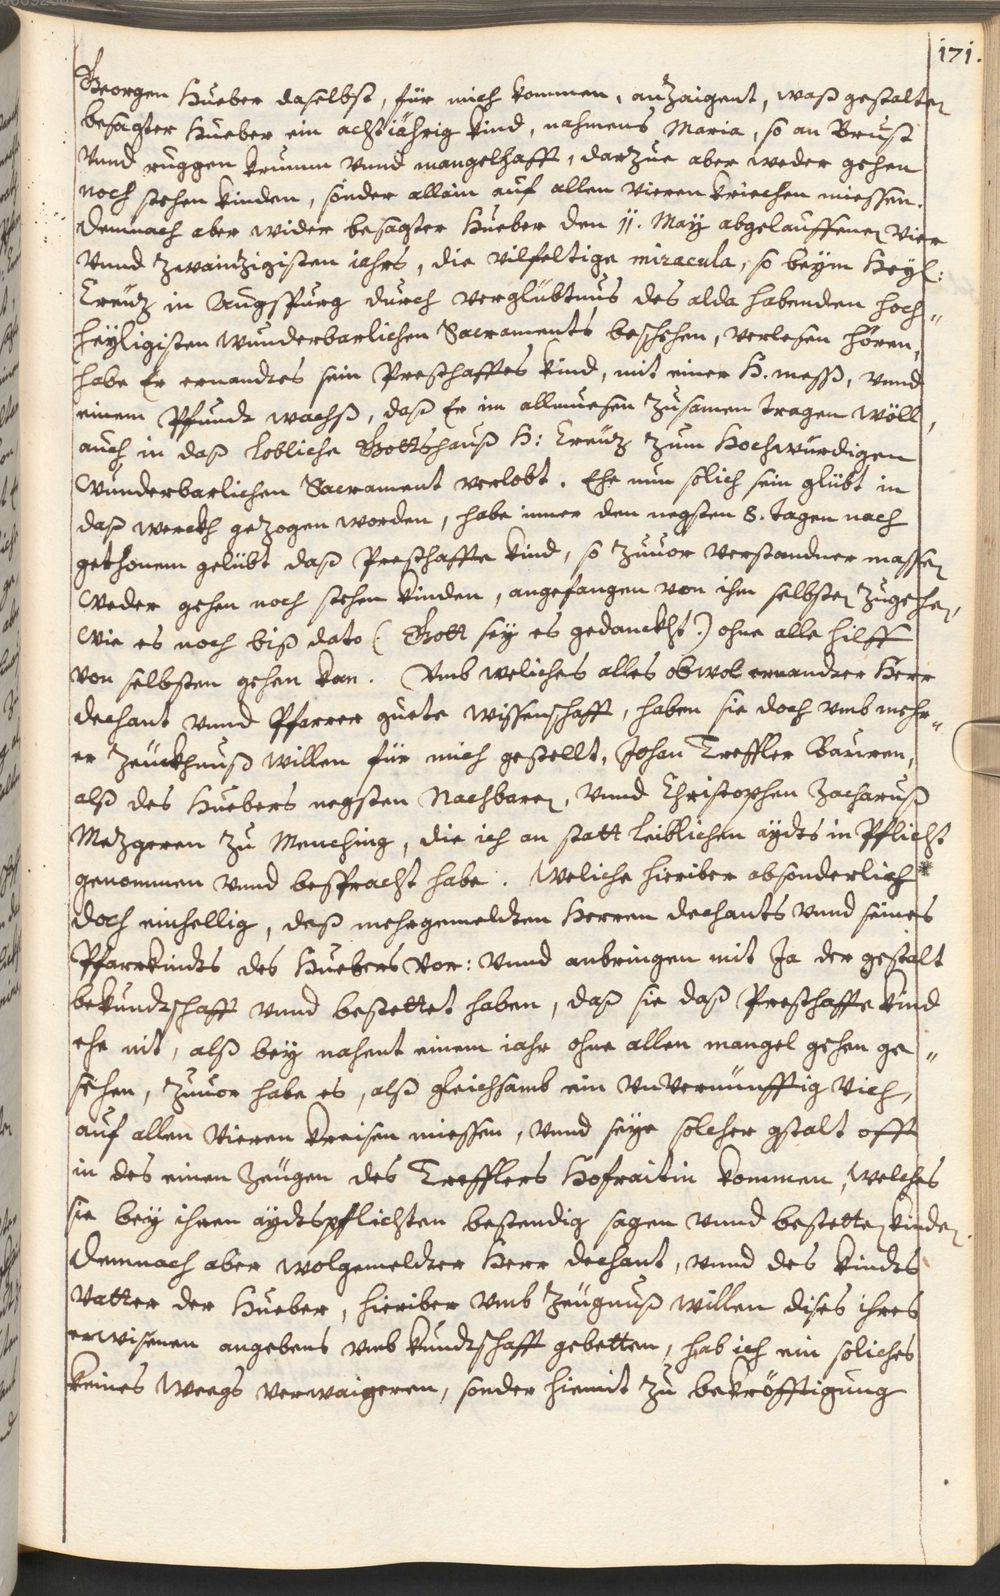 171.
Georgen Hueber daselbst, für mich kommen, anzaigent, waß gestalten
besagter Hueber ein achtiährig kind, nahmens Maria, so an Brust
vnnd ruggen krumm vnnd mangelhafft, darzue aber weder gehen
noch stehen kinden, sonder allain auf allen vieren kriechen miessen.
Demnach aber wider besagter Hueber den 11. May abgelauffenen vier
vnnd zwaintzigisten iahrs, die vilfeltige miracula, so beÿm Heyl:
Creütz in Augspurg durch verglübtnus des alda habenden hoch„
heÿligisten wunderbarlichen Sacraments beschehen, verlesen hören,
habe Er ernandtes sein Presthafftes kind, mit einer H. meß, vnnd
einem Pfundt wachß, daß Er im allmuesen zusamen tragen wöll,
auch in daß lobliche Gottshauß H: Creütz zum Hochwürdigen
Wunderbarlichen Sacrament verlobt. Ehe nun solich sein glübt in
daß werckh gezogen worden, habe inner den negsten 8. tagen nach
gethonem gelübt daß Presthaffte kind, so zuuor verstandner massen
weder gehen noch stehen kinden, angefangen von ihm selbsten zugehen,
wie es noch biß dato (Gott seÿ es gedanckht.) ohne alle hilff
von selbsten gehen kan. Vmb weliches alles obwol ernandter Herr
dechant vnnd Pfarrer guete wissenschafft, haben sie doch vmb mehr„
er zeückhnuß willen für mich gestellt, Johan Treffler Bauren,
alß des Huebers negsten Nachbaren, vnnd Christophen Zacharuß
Metzgeren zu Menching, die ich an statt leiblichen aÿdts in Pflicht
genommen vnnd besprächt habe. Weliche hieriber absonderlich *
doch einhellig, deß mehrgemeldten Herren dechants vnnd seines
Pfarrkindts des Huebers vor: vnnd anbringen mit Ja der gestalt
bekundtschafft vnnd bestettet haben, daß sie daß Presthaffte kind
ehe nit, alß beÿ nahent einem iahr ohne allen mangel gehen ge„
sehen, zuuor habe es, alß gleichsamb ein vnvernünfftig vich,
auf allen vieren kreisen miessen, vnnd seÿe solcher gstalt offt
in des einen zeügen des Trefflers Hofraitin kommen, welches
sie beÿ ihren aÿdtspflichten bestendig sagen vnnd bestetten kinden.
Demnach aber wolgemeldter Herr dechant, vnnd des kindts
vatter der Hueber, hieriber vmb zeügnuß willen dises ihres
erwisenen angebens vmb kundtschafft gebetten, hab ich ein soliches
keines weegs verwaigeren, sonder hiemit zu bekröfftigung